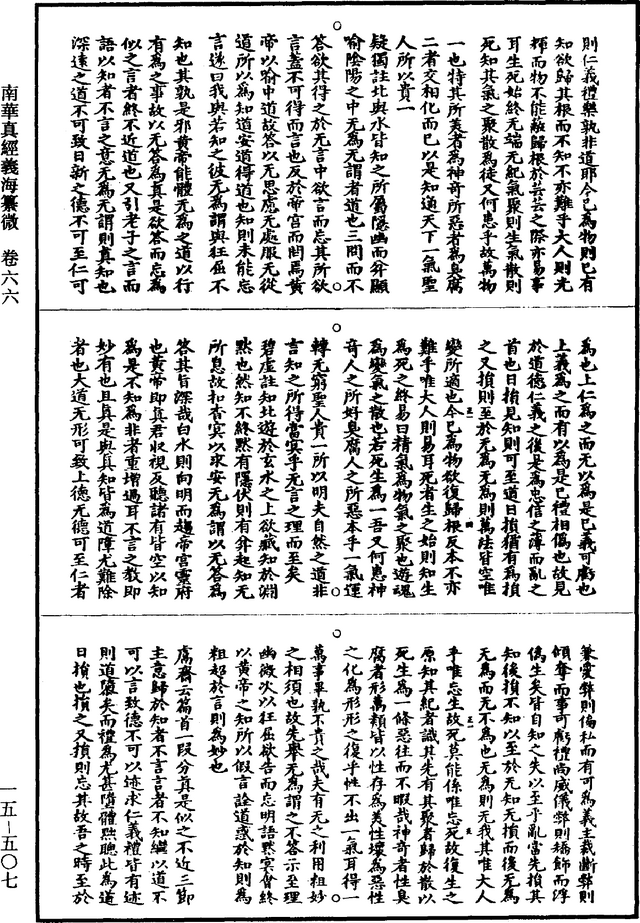 則仁義禮樂孰非道耶今已為物則已有
知欲歸其根而不知不亦難乎大人則光
輝而物不能蔽歸根於芸芸之際亦易事
耳生死始終无端无紀氣聚則生氣散則
死知其氣之聚散為徒又何患乎故萬物
一也特其所美者為神奇所惡者為臭腐
二者交相化而已以是知通天下一氣聖
人所以貴一
疑獨註北與水皆知之所屬隱幽而弅顯
喻陰陽之中无為无謂者道也三問而不
答欲其得之於无言中欲言而忘其所欲
言蓋不可得而言也反於帝宮而問焉黃
帝以喻中道故答以无思慮无處服无從
道所以為知道安道得道也知則未能忘
言遂曰我與若知之彼无為謂與狂屈不
知也其孰是邪黃帝能體无為之道以行
有為之事故以无答為真是欲答而忘為
似之言者終不近道也又引老子之言而
語以知者不言之意无為无謂則真知也
深遠之道不可致日新之德不可至仁可
為也上仁為之而无以為是已義可虧也
上義為之而有以為是已禮相偽也故見
於道德仁義之後是為忠信之薄而亂之
首也日損見知則可至道日損猶有為損
之又損則至於无為无為則萬法皆空唯
變所適也今已為物欲復歸根反本不亦
難乎唯大人則易耳死者生之始則知生
為死之終易曰精氣為物氣之聚也遊魂
為變氣之散也若死生為一吾又何患神
奇人之所好臭腐人之所惡本乎一氣運
轉无窮聖人貴一所以明夫自然之道非
言知之所得當冥乎无言之理而至矣
碧虛註知北遊於玄水之上欲藏知於淵
默也然知不終默有隱伏則有弅起知无
所息故和杳冥以求安无為謂以无答為
答其旨深哉白水則向明而趨帝宮靈府
也黃帝即真君收視反聽諸有皆空以知
為是不知為非者重增過耳不言之教即
妙有也且真是與真知皆為道障尤難除
者也大道无形可致上德无德可至仁者
兼愛弊則偏私而有可為義主裁斷弊則
傾奪而事可虧禮尚威儀弊則矯飾而浮
偽生矣皆自知之失以至乎亂當先損其
知後損不知以至於无知无損而後无為
无為而无不為也无為則无我其唯大人
乎唯忘生故死莫能係唯忘死故復生之
原知其紀者識其先有其聚者歸於散以
死生為一條惡往而不暇哉神奇者性臭
腐者形萬類皆以性存為美性壞為惡性
之化為形形之復乎性不出一氣耳得一
萬事畢孰不貴之哉夫有无之利用粗妙
之相須也故先舉无為謂之不答示至理
幽微次以狂屈欲告而忘明語默冥會終
以黃帝之知所以假言詮道惑於知則為
粗超於言則為妙也
鬳齋云篇首一段分真是似之不近三節
主意歸於知者不言言者不知繼以道不
可以言致德不可以迹求仁義禮皆有迹
則道隳矣而禮為尤甚墮體黜聰此為道
日損也損之又損則忘其故吾之時至於
南華真經義海纂微　卷六六
一五—五〇七